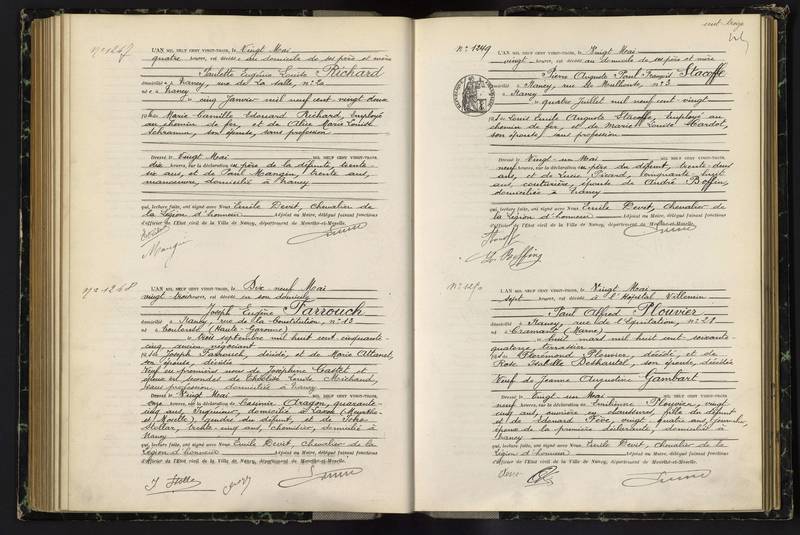 n° 1247
L'AN MIL NEUF CENT VINGT-TROIS, le Vingt Mai
quatre heures, est décédée au domicile de ses père et mère
Paulette Eugénie Louise Richard
domiciliée à Nancy, rue de la Salle, n° 20
née à Nancy
le cinq Janvier mil neuf cent vingt deux
fille Marie Camille Edouard Richard, Employé
au chemin de fer, et de Alice Marie Louise
Schramm, son épouse, sans profession
Dressé le Vingt Mai MIL NEUF CENT VINGT-TROIS,
dix heures, sur la déclaration du père de la défunte, trente
six ans, et de Paul Mangin, trente ans,
manoeuvre, domiciliés à Nancy
qui, lecture faite, ont signé avec Nous Emile Devit, Chevalier de
la Légion d'honneur Adjoint au Maire, délégué faisant fonctions
d'officier de l'État civil de la Ville de Nancy, département de Meurthe-et-Moselle.
Mangin
n° 1248
L'AN MIL NEUF CENT VINGT-TROIS, le Dix neuf Mai
vingt trois heures, est décédé en son domicile
Joseph Eugène Farrouch
domicilié à Nancy, rue de la Constitution, n° 13
né à Toulouse (Haute-Garonne)
le trois septembre mil huit cent cinquante-
cinq, ancien négociant
fils Joseph Farrouch, décédé, et de Marie
son épouse, décédée
Veuf en premières noces de Joséphine Castet et
époux en secondes de Louise Michaud,
sans profession, domiciliée à Nancy
Dressé le Vingt Mai MIL NEUF CENT VINGT-TROIS,
onze heures, sur la déclaration de Casimir Aragon, quarante-
cinq ans, Ingénieur, domicilié à Laxou (Meurthe-
et-Moselle) gendre du défunt, et de
Stollar, trente-cinq ans, chemisier, domicilié à
Nancy
qui, lecture faite, ont signé avec Nous Emile Devit, Chevalier de la
Légion d'honneur Adjoint au Maire, délégué faisant fonctions
d'officier de l'État civil de la Ville de Nancy, département de Meurthe-et-Moselle.
cent treize
n° 1249
L'AN MIL NEUF CENT VINGT-TROIS, le Vingt Mai
vingt heures, est décédé au domicile de ses père et mère
Pierre Auguste Paul François Stacoffe
domicilié à Nancy, rue de Mulhouse, n° 3
né à Nancy
le quatre Juillet mil neuf cent vingt
fils Louis Emile Auguste Stacoffe, Employé au
chemin de fer, et de Marie Louise Mardot,
son épouse, sans profession
Dressé le Vingt-un Mai MIL NEUF CENT VINGT-TROIS,
neuf heures, sur la déclaration du père du défunt, trente-deux
ans, et de Lucie Picard, cinquante-huit
ans, couturière, épouse de André Boffin,
domiciliés à Nancy
qui, lecture faite, ont signé avec Nous Emile Devit, Chevalier de
la Légion d'honneur Adjoint au Maire, délégué faisant fonctions
d'officier de l'État civil de la Ville de Nancy, département de Meurthe-et-Moselle.
n° 1250
L'AN MIL NEUF CENT VINGT-TROIS, le Vingt Mai
sept heures, est décédé à l'Hôpital Villemin
Paul Alfred Plouvier
domicilié à Nancy, rue de l'Equitation, n° 28
né à Cramant (Marne)
le huit mars mil huit cent soixante-
quatorze, terrassier
fils Florimond Plouvier, décédé, et de
Rose Isabelle Deshautel, son épouse, décédée
Veuf de Jeanne Augustine Gambart
Dressé le Vingt-un Mai MIL NEUF CENT VINGT-TROIS,
neuf heures, sur la déclaration de Emilienne Plouvier, vingt-
cinq ans, ouvrière en chaussures, fille du défunt
et de Edouard Fève, vingt quatre ans,
époux de la première déclarante, domiciliés à
Nancy
qui, lecture faite, ont signé avec Nous Emile Devit, Chevalier de la
Légion d'honneur Adjoint au Maire, délégué faisant fonctions
d'officier de l'État civil de la Ville de Nancy, département de Meurthe-et-Moselle.